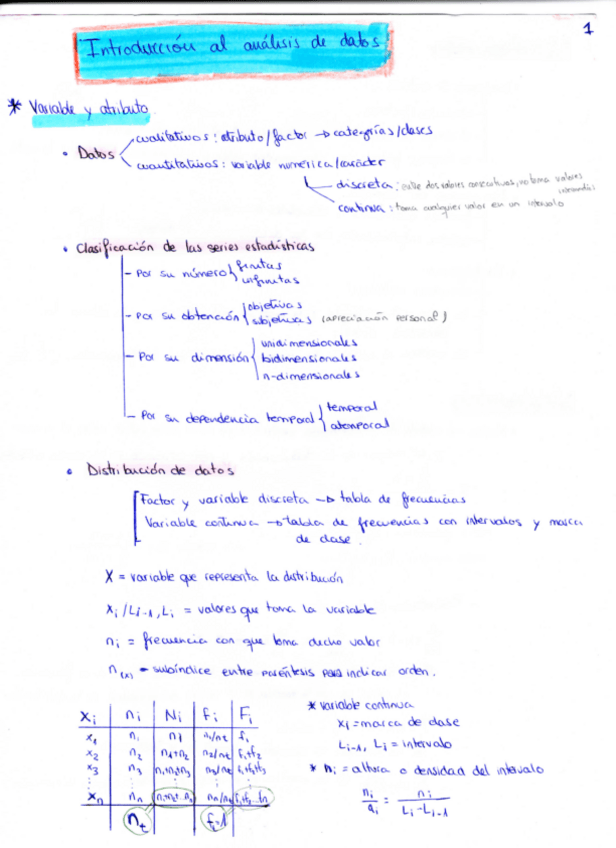 1
Introducción al análisis de datos
* Variable y atributo.
• Datos
cualitativos: atributo/factor → categorías/clases
cuantitativos: variable numérica/carácter
discreta: entre dos valores consecutivos, no toma valores
intermedios
continua: toma cualquier valor en un intervalo
• Clasificación de las series estadísticas
- Por su número { finitas
infinitas
- Por su obtención { objetivas
subjetivas (apreciación personal)
- Por su dimensión { unidimensionales
bidimensionales
n-dimensionales
- Por su dependencia temporal { temporal
atemporal
• Distribución de datos
Factor y variable discreta → tabla de frecuencias
Variable continua → tabla de frecuencias con intervalos y marca
de clase.
X = variable que representa la distribución
xi / Li-1, Li = valores que toma la variable
ni = frecuencia con que toma dicho valor
n(x) = subíndice entre paréntesis para indicar orden.
xi | ni | Ni | fi | Fi
x1 | n1 | n1 | n1/nt | f1
x2 | n2 | n1+n2 | n2/nt | f1+f2
x3 | n3 | n1+n2+n3 | n3/nt | f1+f2+f3
⋮ ⋮ ⋮ ⋮ ⋮
xn | nn | n1+n2+...nn | nn/nt | f1+f2...fn
nt
f=1
* variable continua
xi = marca de clase
Li-1, Li = intervalo
* hi = altura o densidad del intervalo
ni/ai = ni/(Li-Li-1)